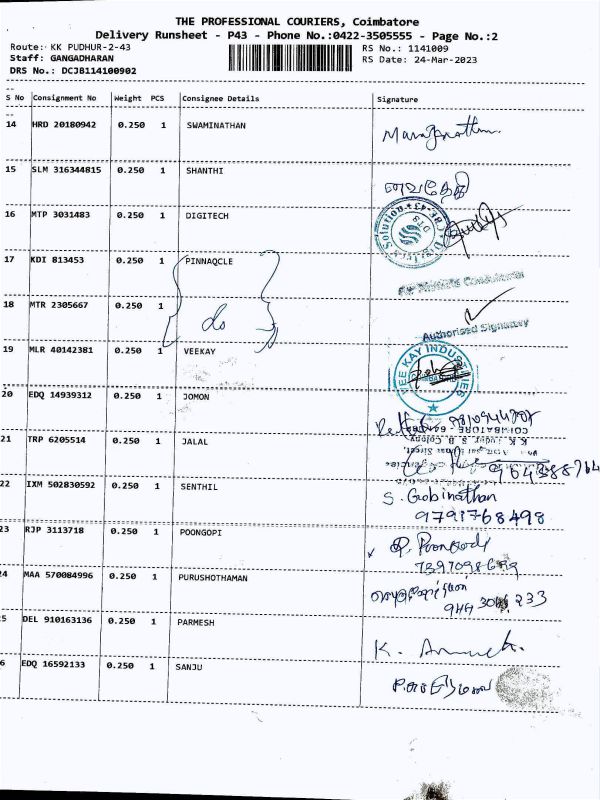 THE PROFESSIONAL COURIERS, Coimbatore
Delivery Runsheet - P43 - Phone No.:0422-3505555 - Page No.:2
Route: KK PUDHUR-2-43 RS No.: 1141009
Staff: GANGADHARAN RS Date: 24-Mar-2023
DRS No.: DCJ8114100902
S No Consignment No Weight PCS Consignee Details Signature
14 HRD 20180942 0.250 1 SWAMINATHAN
15 SLM 316344815 0.250 1 SHANTHI
16 MTP 3031483 0.250 1 DIGITECH
17 KDI 813453 0.250 1 PINNAQCLE
18 MTR 2305667 0.250 1 do
Authorised Signatory
19 MLR 40142381 0.250 1 VEEKAY VEE KAY INDUSTRIES
20 EDQ 14939312 0.250 1 JOMON
COIMBATORE
21 TRP 6205514 0.250 1 JALAL
22 IXM 502830592 0.250 1 SENTHIL S. Gobinathan
9791768498
23 RJP 3113718 0.250 1 POONGOPI
24 MAA 570084996 0.250 1 PURUSHOTHAMAN
5 DEL 910163136 0.250 1 PARMESH
6 EDQ 16592133 0.250 1 SANJU